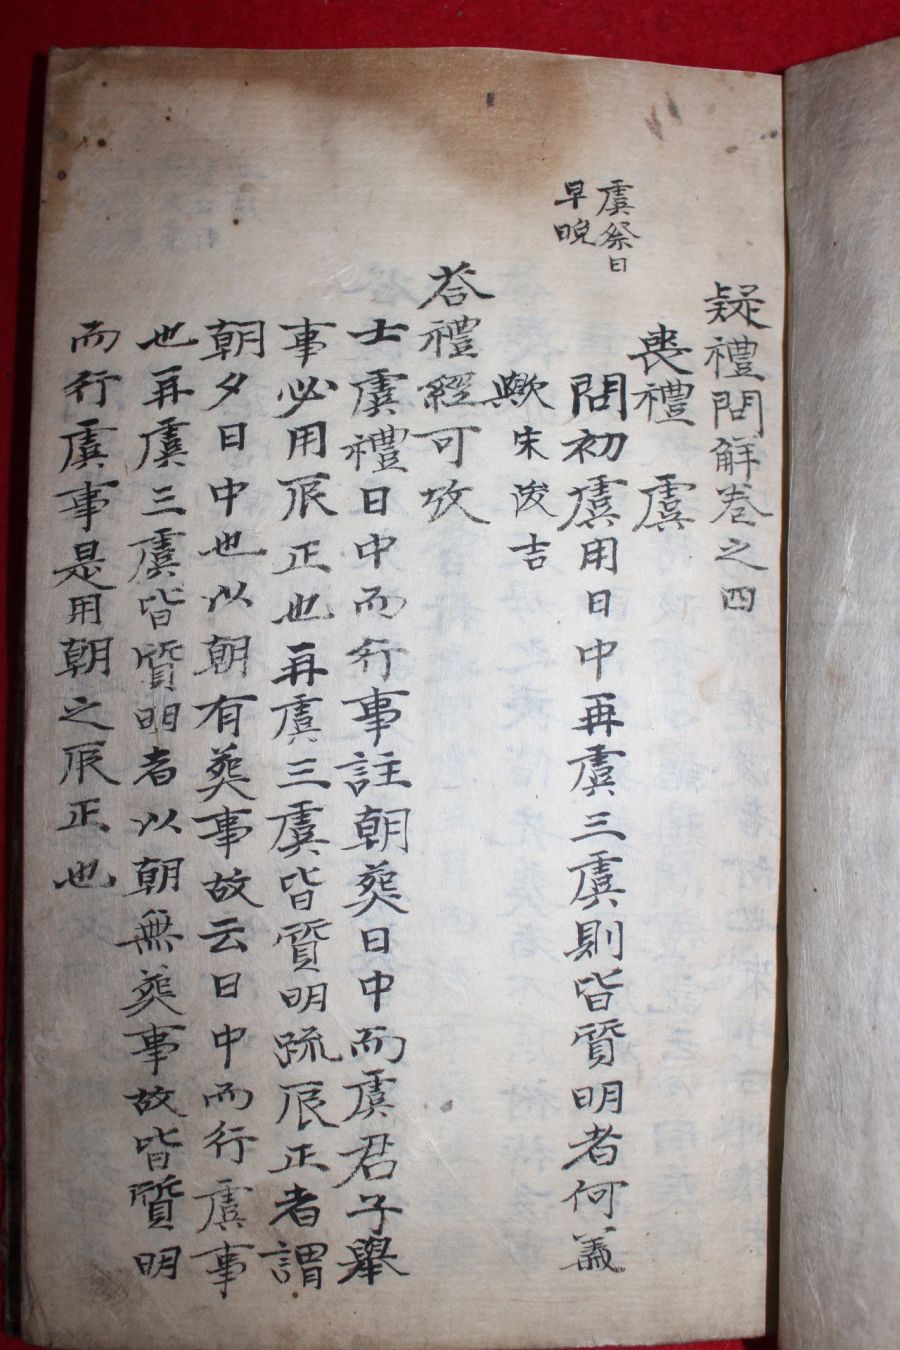 疑禮問解卷之四
喪禮 虞
虞祭日
早晚
問初虞用日中再虞三虞則皆質明者何義
歟宋浚吉
荅禮經可攷
士虞禮日中而行事註朝葬日中而虞君子舉
事必用辰正也再虞三虞皆質明疏辰正者謂
朝夕日中也以朝有葬事故云日中而行虞事
也再虞三虞皆質明者以朝無葬事故皆質明
而行虞事是用朝之辰正也